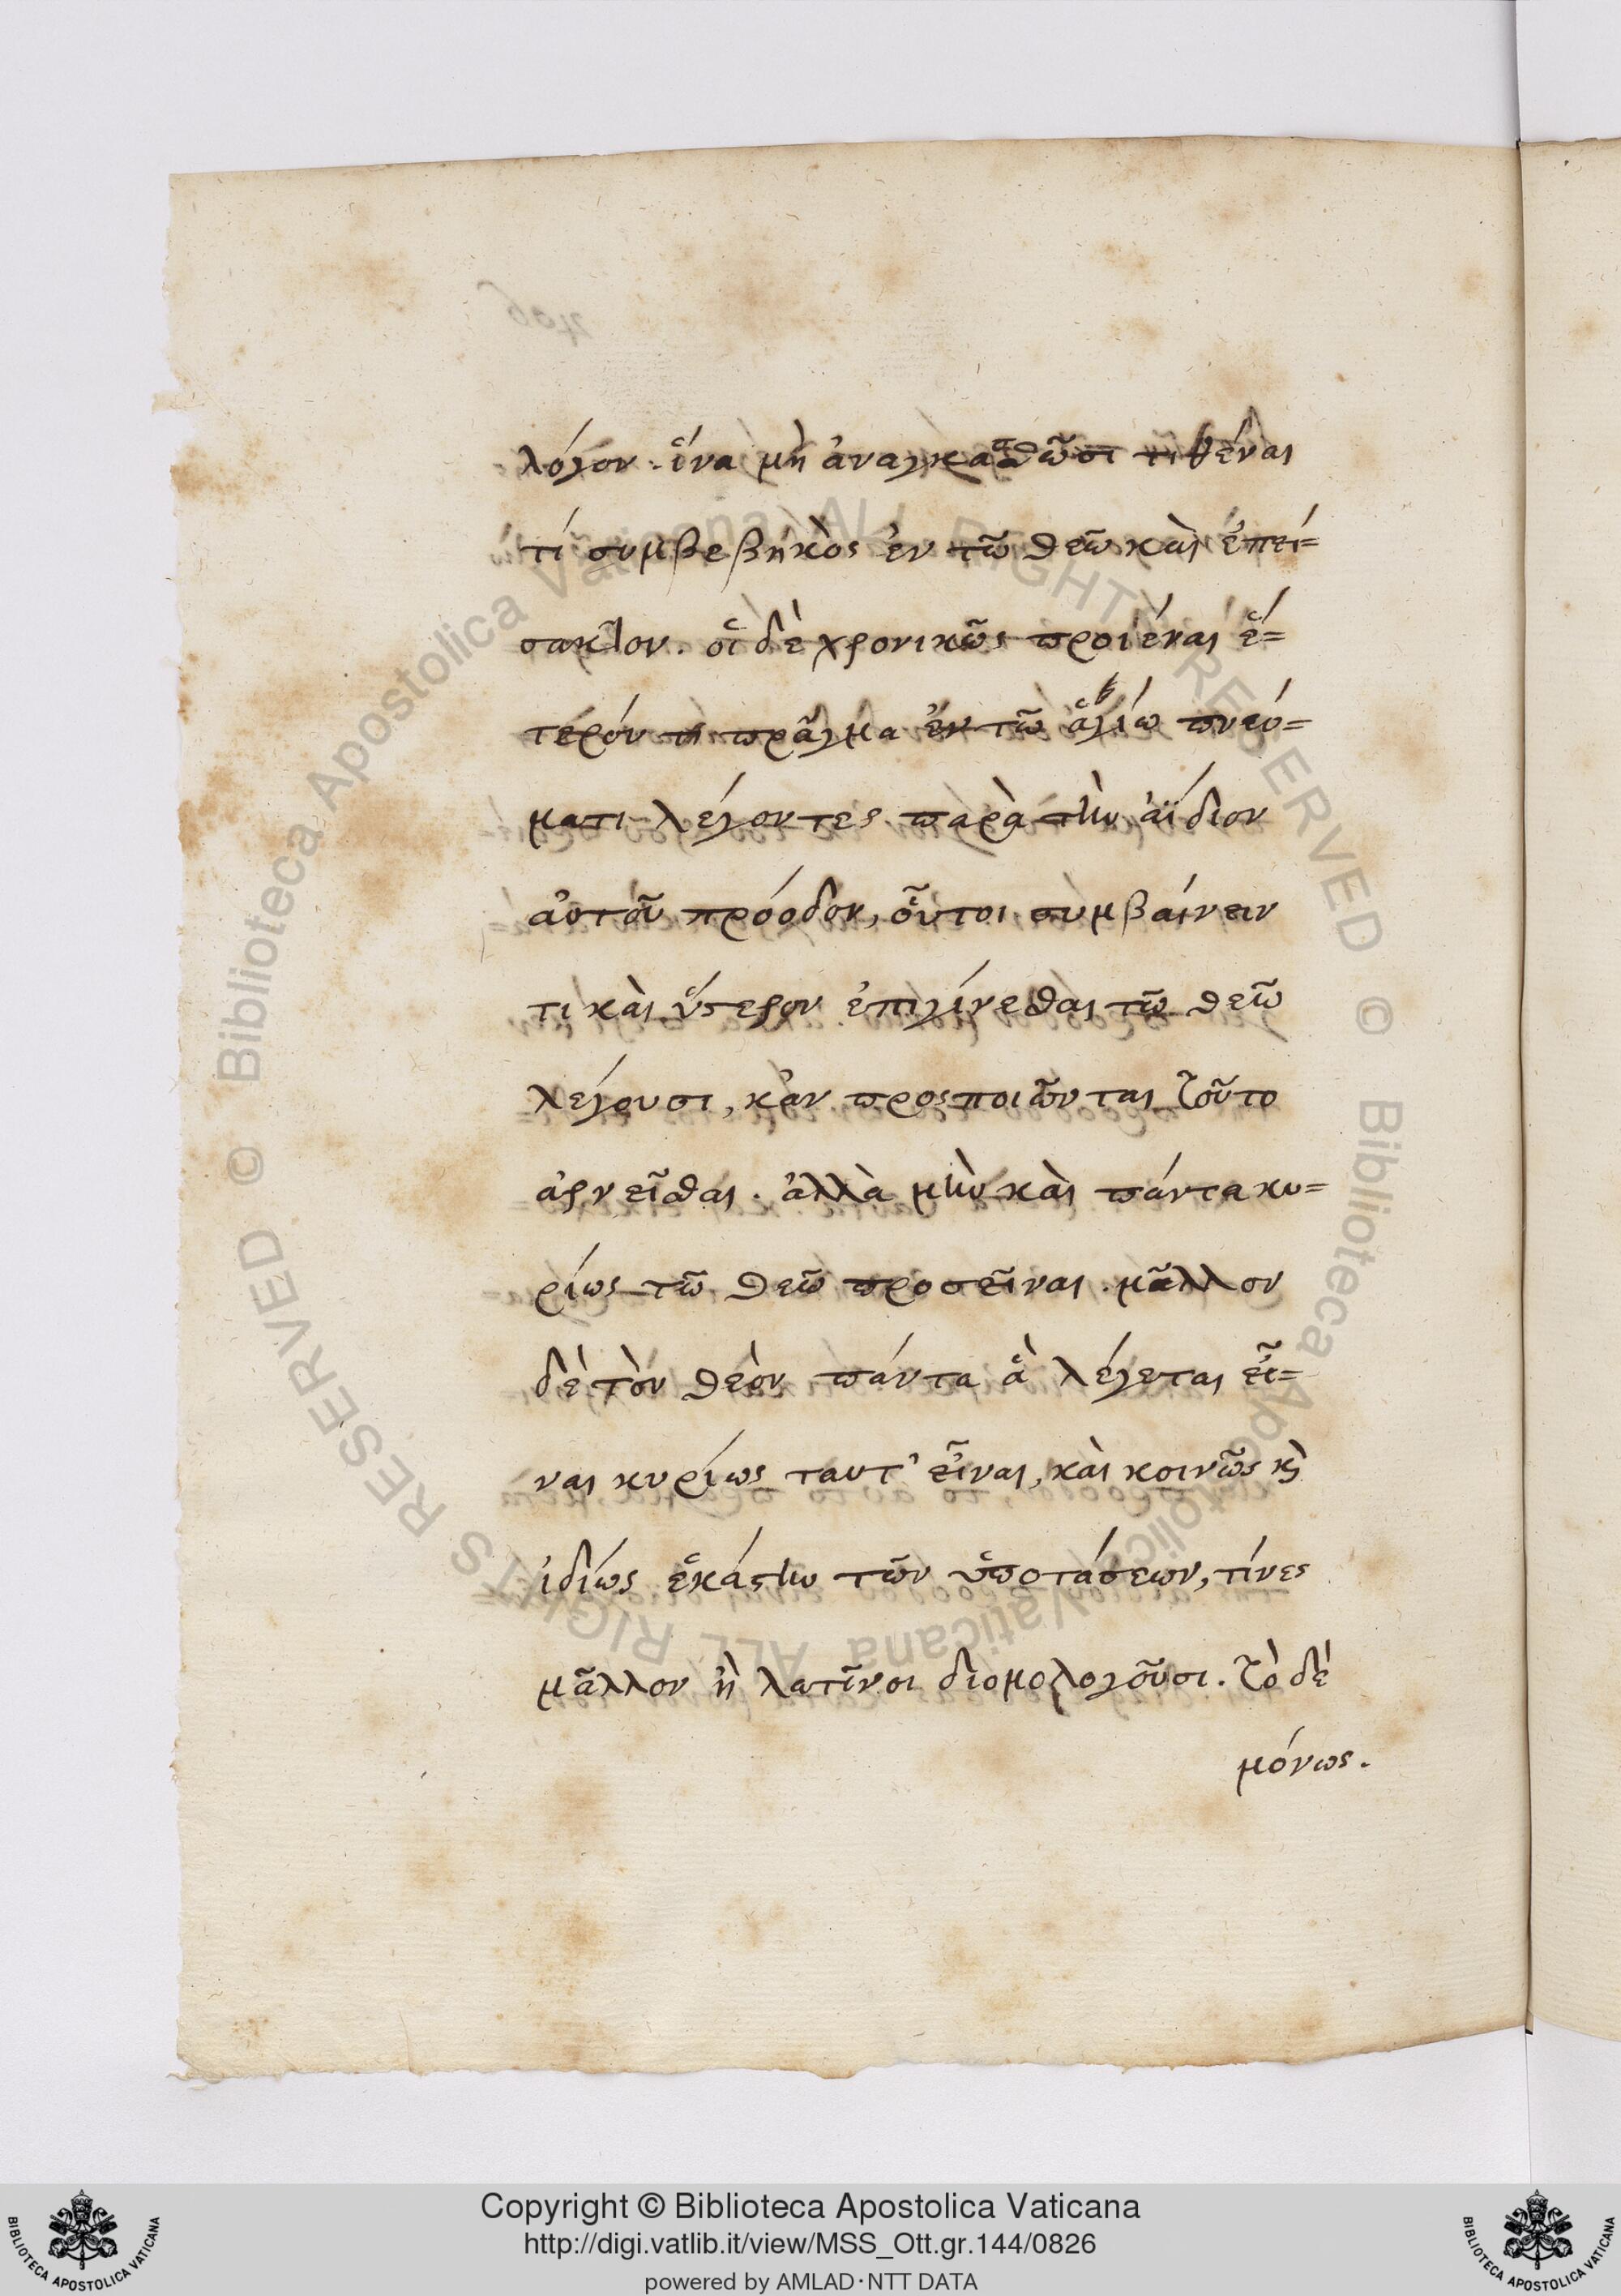 λόγον. ἵνα μὴ ἀναγκασθῶσι τιθέναι
τί συμβεβηκὸς ἐν τῶ θεῶ καὶ ἐπεί=
σακτον. οἱ δὲ χρονικῶς προϊέναι ἕ=
τερόν τι πρᾶγμα ἐν τῶ ἁγίω πνεύ=
ματι λέγοντες παρὰ τὴν ἀΐδιον
αὐτοῦ πρόοδον, οὗτοι συμβαίνειν
τι καὶ ὕστερον ἐπιγίνεσθαι τῶ θεῶ
λέγουσι, κἂν προςποιῶνται τοῦτο
ἀρνεῖσθαι. ἀλλὰ μὴν καὶ πάντα κυ=
ρίως τῶ θεῶ προσεῖναι. μᾶλλον
δὲ τὸν θεὸν πάντα ἃ λέγεται εἶ=
ναι κυρίως ταυτ' εἶναι, καὶ κοινῶς κὴ
ἰδίως ἑκάστην τῶν ὑποστάσεων, τίνες
μᾶλλον ἢ λατῖνοι διομολογοῦσι. τὸ δὲ
μόνως.
Copyright © Biblioteca Apostolica Vaticana
http://digi.vatlib.it/view/MSS_Ott.gr.144/0826
powered by AMLAD·NTT DATA